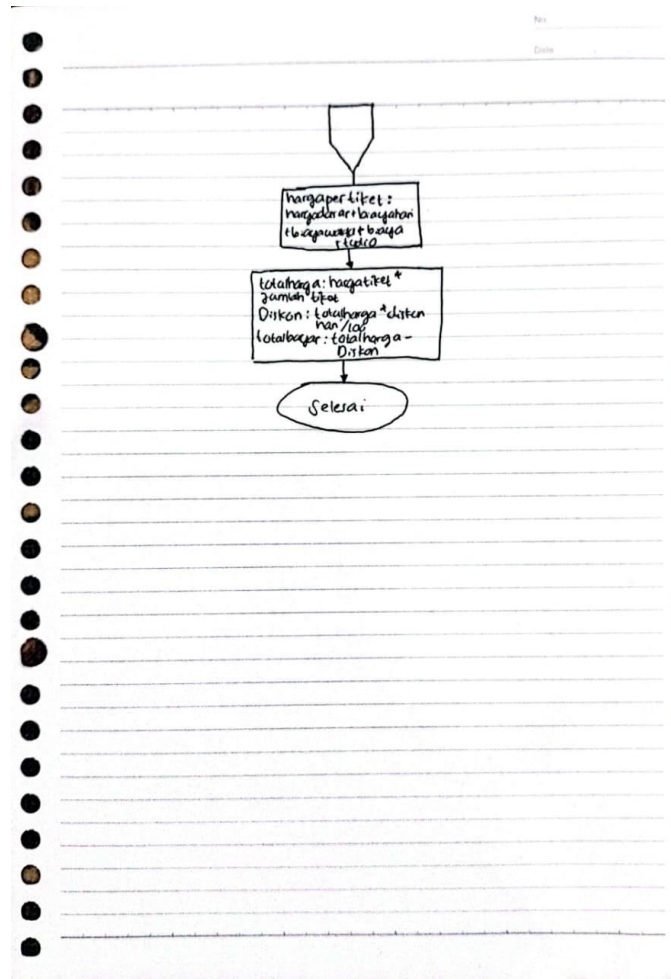 No
Date
hargapertiket :
hargadasar+biayahari
+biayawaktu+biaya
studio
totalharga : hargatiket *
Jumlah tiket
Diskon : totalharga * diskon
hari/100
totalbayar : totalharga -
Diskon
Selesai